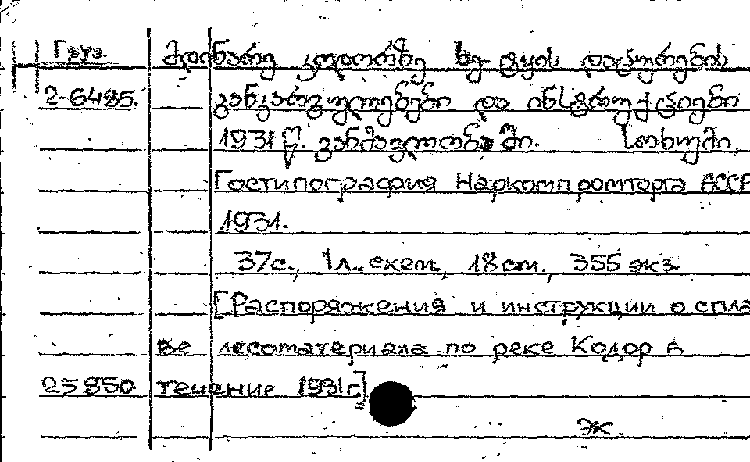 Груз. მდინარე კოდორზე ხე-ტყის დაცურების
2-6485. განკარგულებები და ინსტრუქციები
1931 წ. განმავლობაში. სოხუმი
Гостипография Наркомпромторга АССР
1931.
37с., 1л. схем, 18 см., 355 экз.
[Распоряжения и инструкции о спла
ве лесоматериала по реке Кодор в
25850 течение 1931г]
Ж